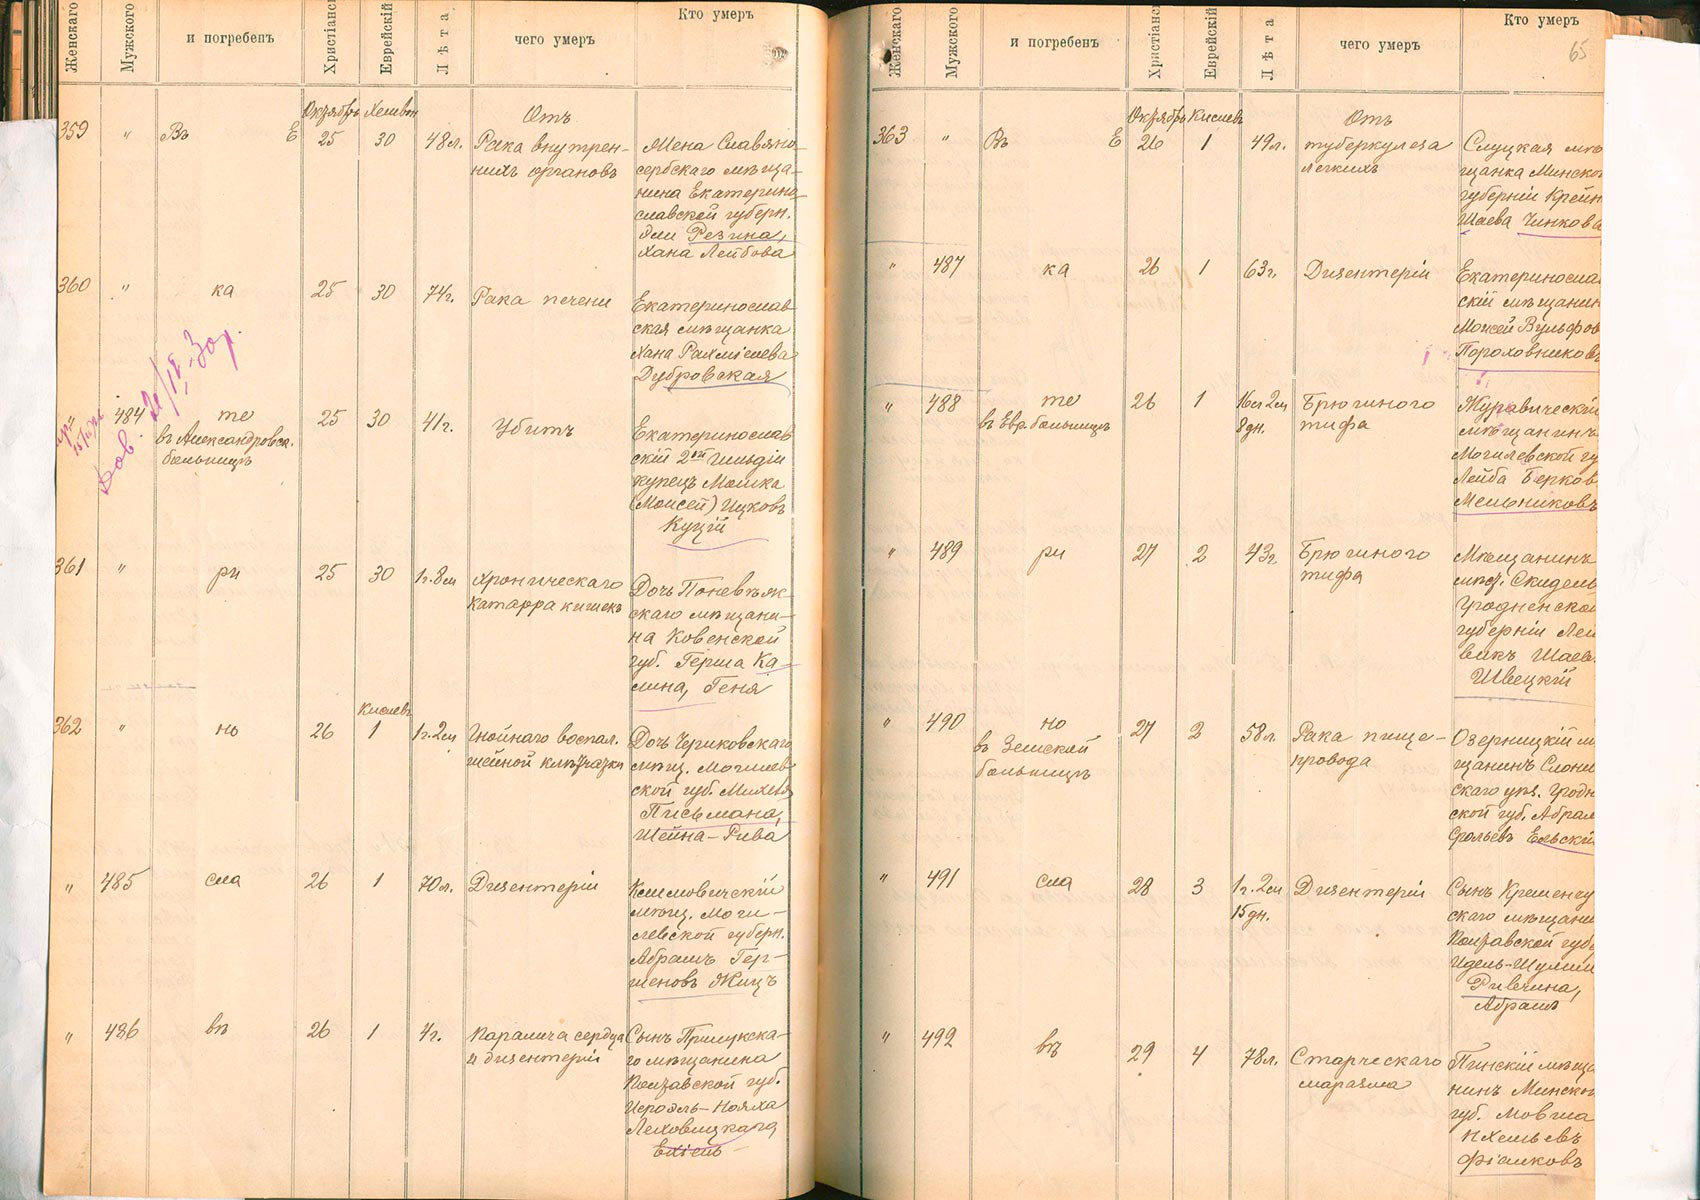 Женскаго
Мужского
и погребенъ
Христіанс
Еврейскій
Лѣта
чего умеръ
Кто умеръ
Октябрь Хешван
Отъ
359 " Въ Е 25 30 48 л. Рака внутрен-
нихъ органовъ
Жена Славяно
сербскаго мѣща-
нина Екатерино
славской губерн.
Эли Резина,
Хана Лейбова
360 " ка 25 30 74 г. Рака печени
Екатеринослав
ская мѣщанка
Хана Рахміелева
Дубровская
" 484 те 25 30 41 г. Убитъ
въ Александровск.
больницѣ
Екатеринослав
скій 2ой гильдіи
купецъ Мошка
(Моисей) Ицковъ
Куцій
361 " ри 25 30 1 г. 8 м Хроническаго
катарра кишекъ
Дочь Поневѣж
скаго мѣщани-
на Ковенской
губ. Герша Ка-
лина, Геня
Кислевъ
362 " но 26 1 1 г. 2 м Гнойнаго воспал.
шейной клѣтчатки
Дочь Чериковскаго
мѣщ. Могилев
ской губ. Михеля
Письмана,
Шейна-Рива
" 485 сла 26 1 70 л. Дизентеріи
Климовичскій
мѣщ. Моги-
левской губерн.
Абрамъ Гер-
шеновъ Жицъ
" 486 въ 26 1 4 г. Паралича сердца
и дизентеріи
Сынъ Прилукска-
го мѣщанина
Полтавской губ.
Исроэль-Нояха
Леховицкаго
Ехіель
Женскаго
Мужского
и погребенъ
Христіанс
Еврейскій
Лѣта
чего умеръ
Кто умеръ
65
Октябрь Кислевъ
Отъ
363 " Въ Е 26 1 49 л. туберкулеза
легкихъ
Слуцкая мѣ
щанка Минской
губерніи Крейн
Шаева Чинкова
" 487 ка 26 1 63 г. Дизентеріи
Екатеринослав
скій мѣщанин
Моисей Вульфов
Пороховниковъ
" 488 те 26 1 16 л 2 м Брюшного
въ Евр. больницѣ 8 дн. тифа
Журавическій
мѣщанинъ
Могилевской гу
Лейба Берков
Мельниковъ
" 489 ри 27 2 43 г. Брюшного
тифа
Мѣщанинъ
мѣст. Скидель
Гродненской
губерніи Лей
викъ Шаев.
Швецкій
" 490 но 27 2 58 л. Рака пище-
въ Земской провода
больницѣ
Озерницкій м
щанинъ Слони
скаго уѣз. Гродн
ской губ. Абрам
Сролевъ Ельскій
" 491 сла 28 3 1 г. 2 м Дизентеріи
15 дн.
Сынъ Кременчу
скаго мѣщани
Полтавской губ
Идель-Шулим
Ривкина,
Абрамъ
" 492 въ 29 4 78 л. Старческаго
маразма
Пинскій мѣща
нинъ Минской
губ. Мовша
Ихельевъ
Фіалковъ